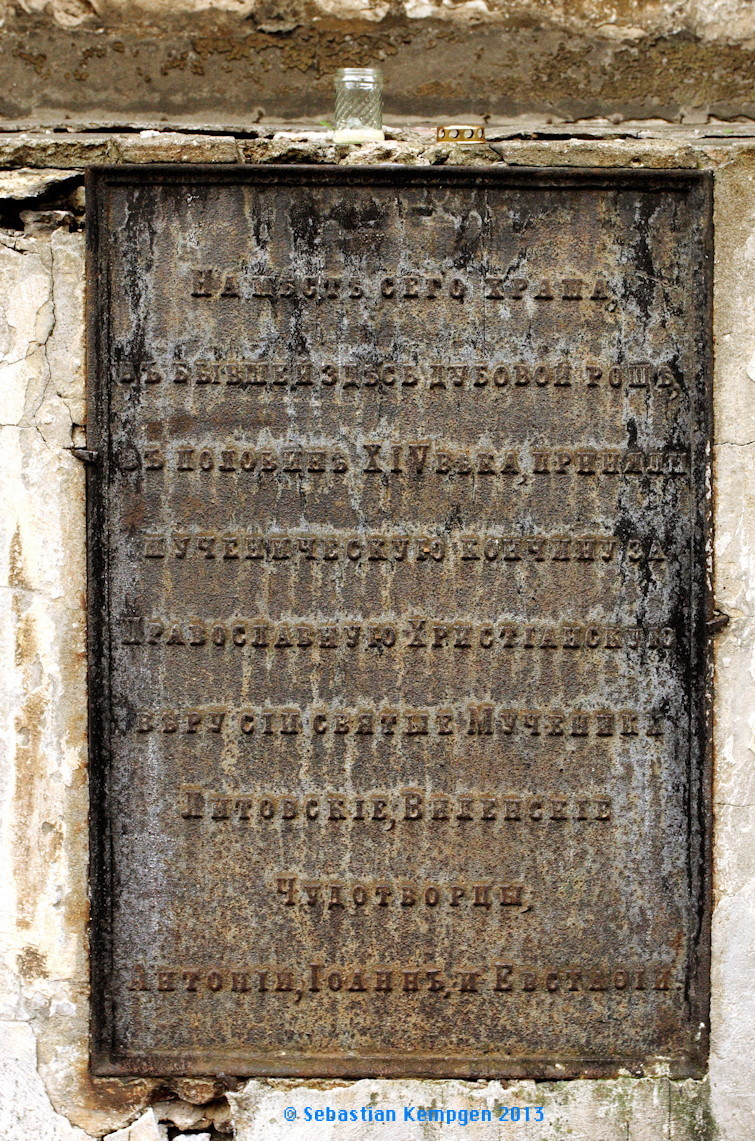 На мѣстѣ сего храма,
въ бывшей здѣсь дубовой рощѣ,
въ половинѣ XIV вѣка, приняли
мученическую кончину за
Православную Христіанскую
вѣру сіи святые Мученики
Литовскіе, Виленскіе
Чудотворцы,
Антоній, Іоаннъ, и Евстафій.
© Sebastian Kempgen 2013